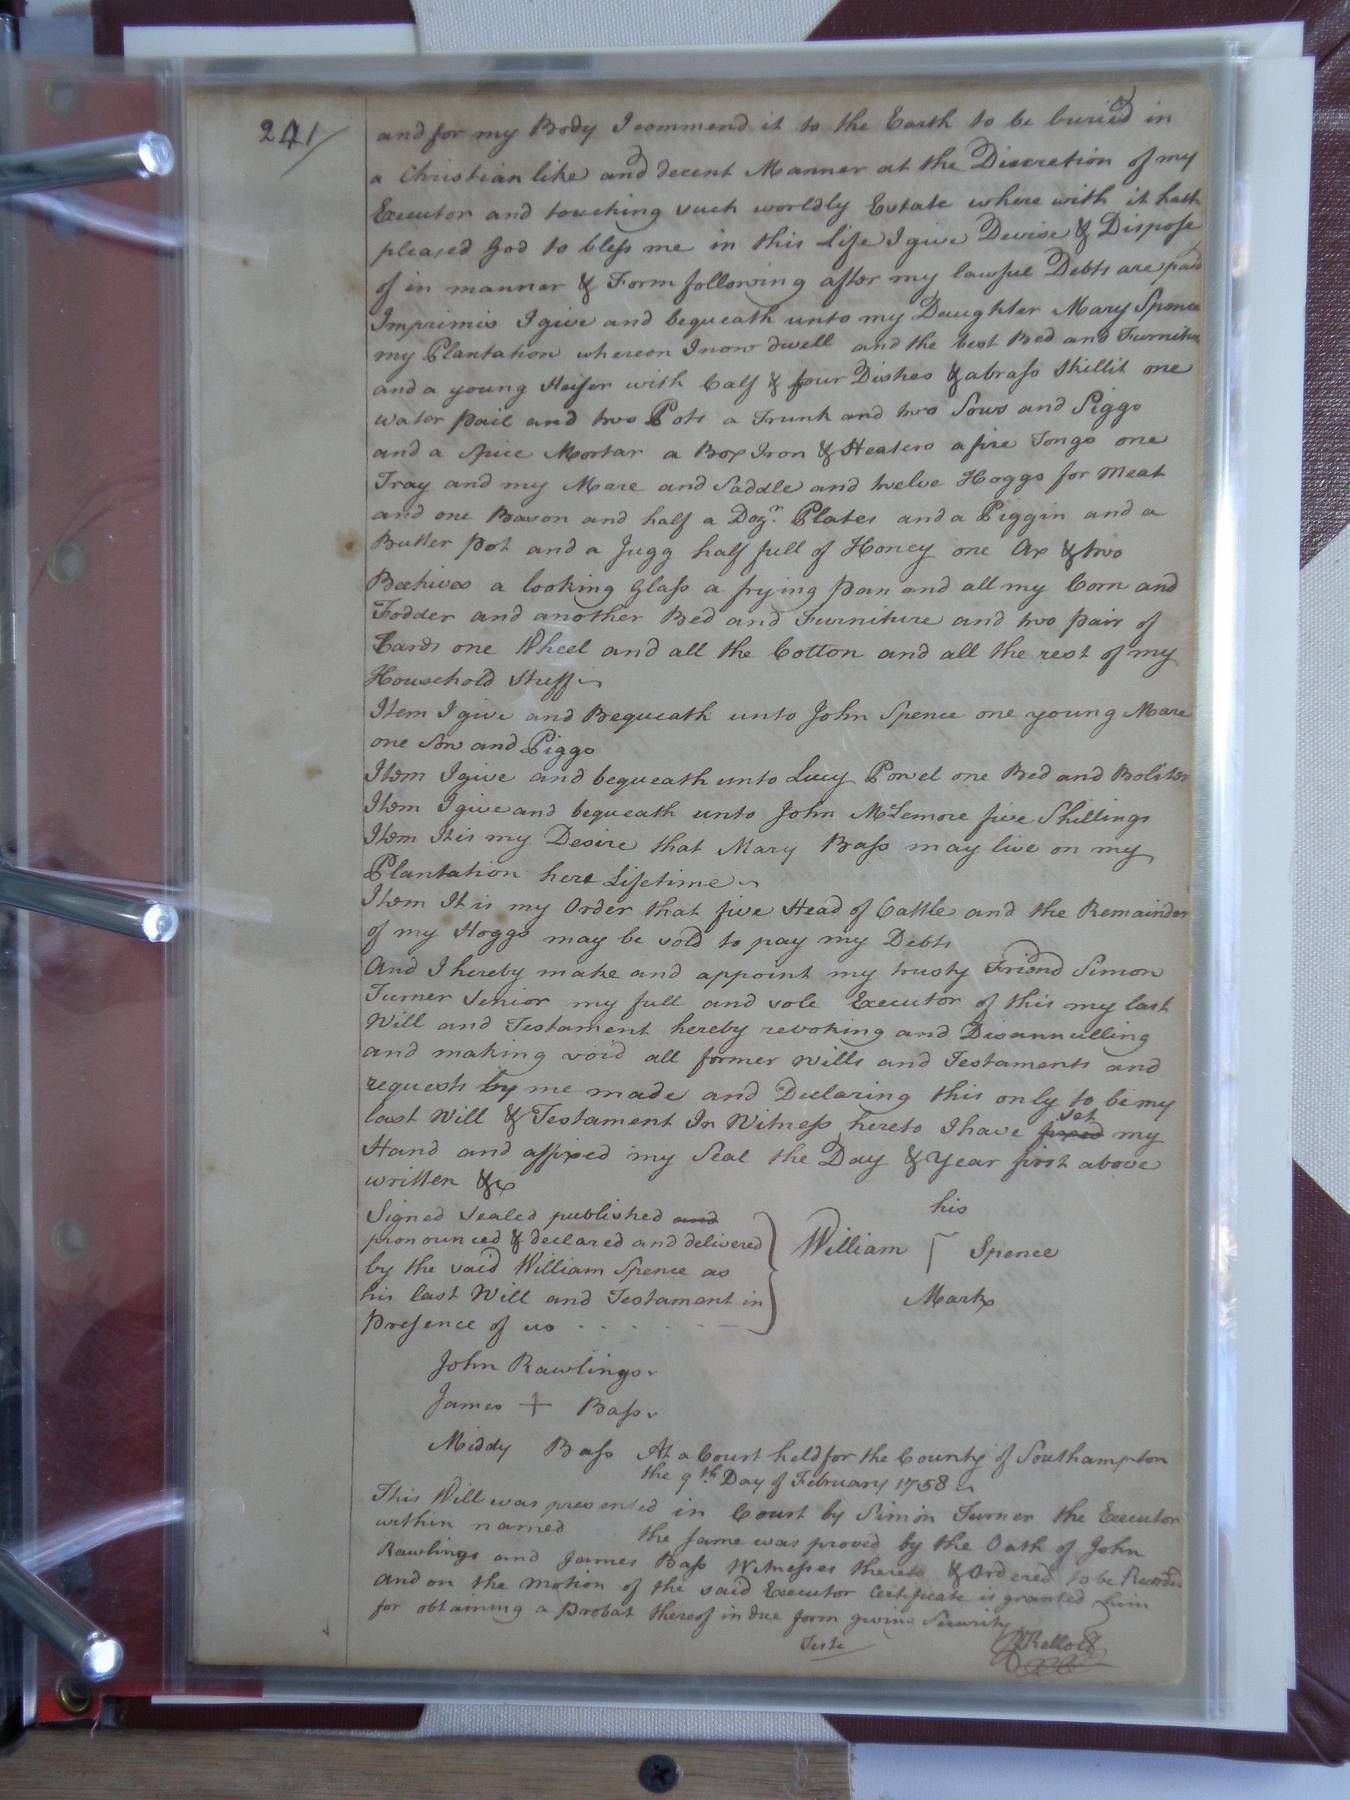 241/
and for my Body I commend it to the Earth to be buried in
a Christian like and decent Manner at the Discretion of my
Executor and touching such worldly Estate where with it hath
pleased God to bless me in this Life I give Devise & Dispose
of in manner & Form following after my lawful Debts are paid
Imprimis I give and bequeath unto my Daughter Mary Spence
my Plantation whereon I now dwell and the best Bed and Furniture
and a young Heifer with Calf & four Dishes & a brass Skillit one
water pail and two Pots a Trunk and two Sows and Piggs
and a Spice Mortar a Box Iron & Heaters a fire Tongs one
Tray and my Mare and Saddle and twelve Hoggs for meat
and one Bason and half a Dozn. Plates and a Piggin and a
Butter pot and a Jugg half full of Honey one Ax & two
Beehives a looking Glass a frying pan and all my Corn and
Fodder and another Bed and Furniture and two pair of
Cards one Wheel and all the Cotton and all the rest of my
Household Stuff
Item I give and Bequeath unto John Spence one young Mare
one Sow and Piggs
Item I give and bequeath unto Lucy Powel one Bed and Bolster
Item I give and bequeath unto John McLemore five Shillings
Item It is my Desire that Mary Bass may live on my
Plantation here Lifetime
Item It is my Order that five Head of Cattle and the Remainder
of my Hoggs may be sold to pay my Debts
And I hereby make and appoint my trusty Friend Simon
Turner Senior my full and sole Executor of this my last
Will and Testament hereby revoking and Disannulling
and making void all former wills and Testaments and
requests by me made and Declaring this only to be my
last Will & Testament In Witness hereto I have fixed set my
Hand and affixed my Seal the Day & Year first above
written &c
Signed Sealed published and
pronounced & declared and delivered
by the said William Spence as
his last Will and Testament in
Presence of us
his
William Spence
Mark
John Rawlings
James + Bass
Middy Bass
At a Court held for the County of Southampton
the 9th Day of February 1758
This Will was presented in Court by Simon Turner the Executor
within named the same was proved by the Oath of John
Rawlings and James Bass Witnesses thereto & Ordered to be Recorded
and on the motion of the said Executor Certificate is granted him
for obtaining a Probat thereof in due form giving Security
Teste
RKello